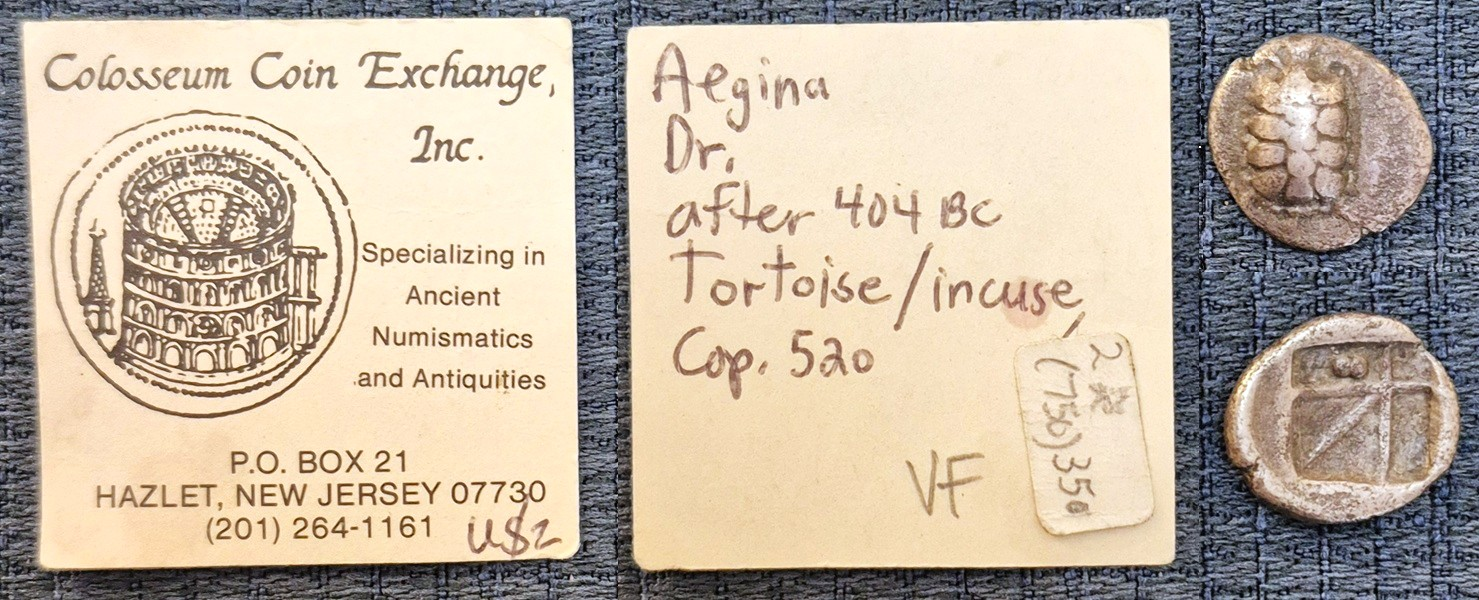 Colosseum Coin Exchange,
Inc.
Specializing in
Ancient
Numismatics
and Antiquities
P.O. BOX 21
HAZLET, NEW JERSEY 07730
(201) 264-1161
Aegina
Dr.
after 404 BC
Tortoise/incuse
Cop. 520
VF
(756) 350